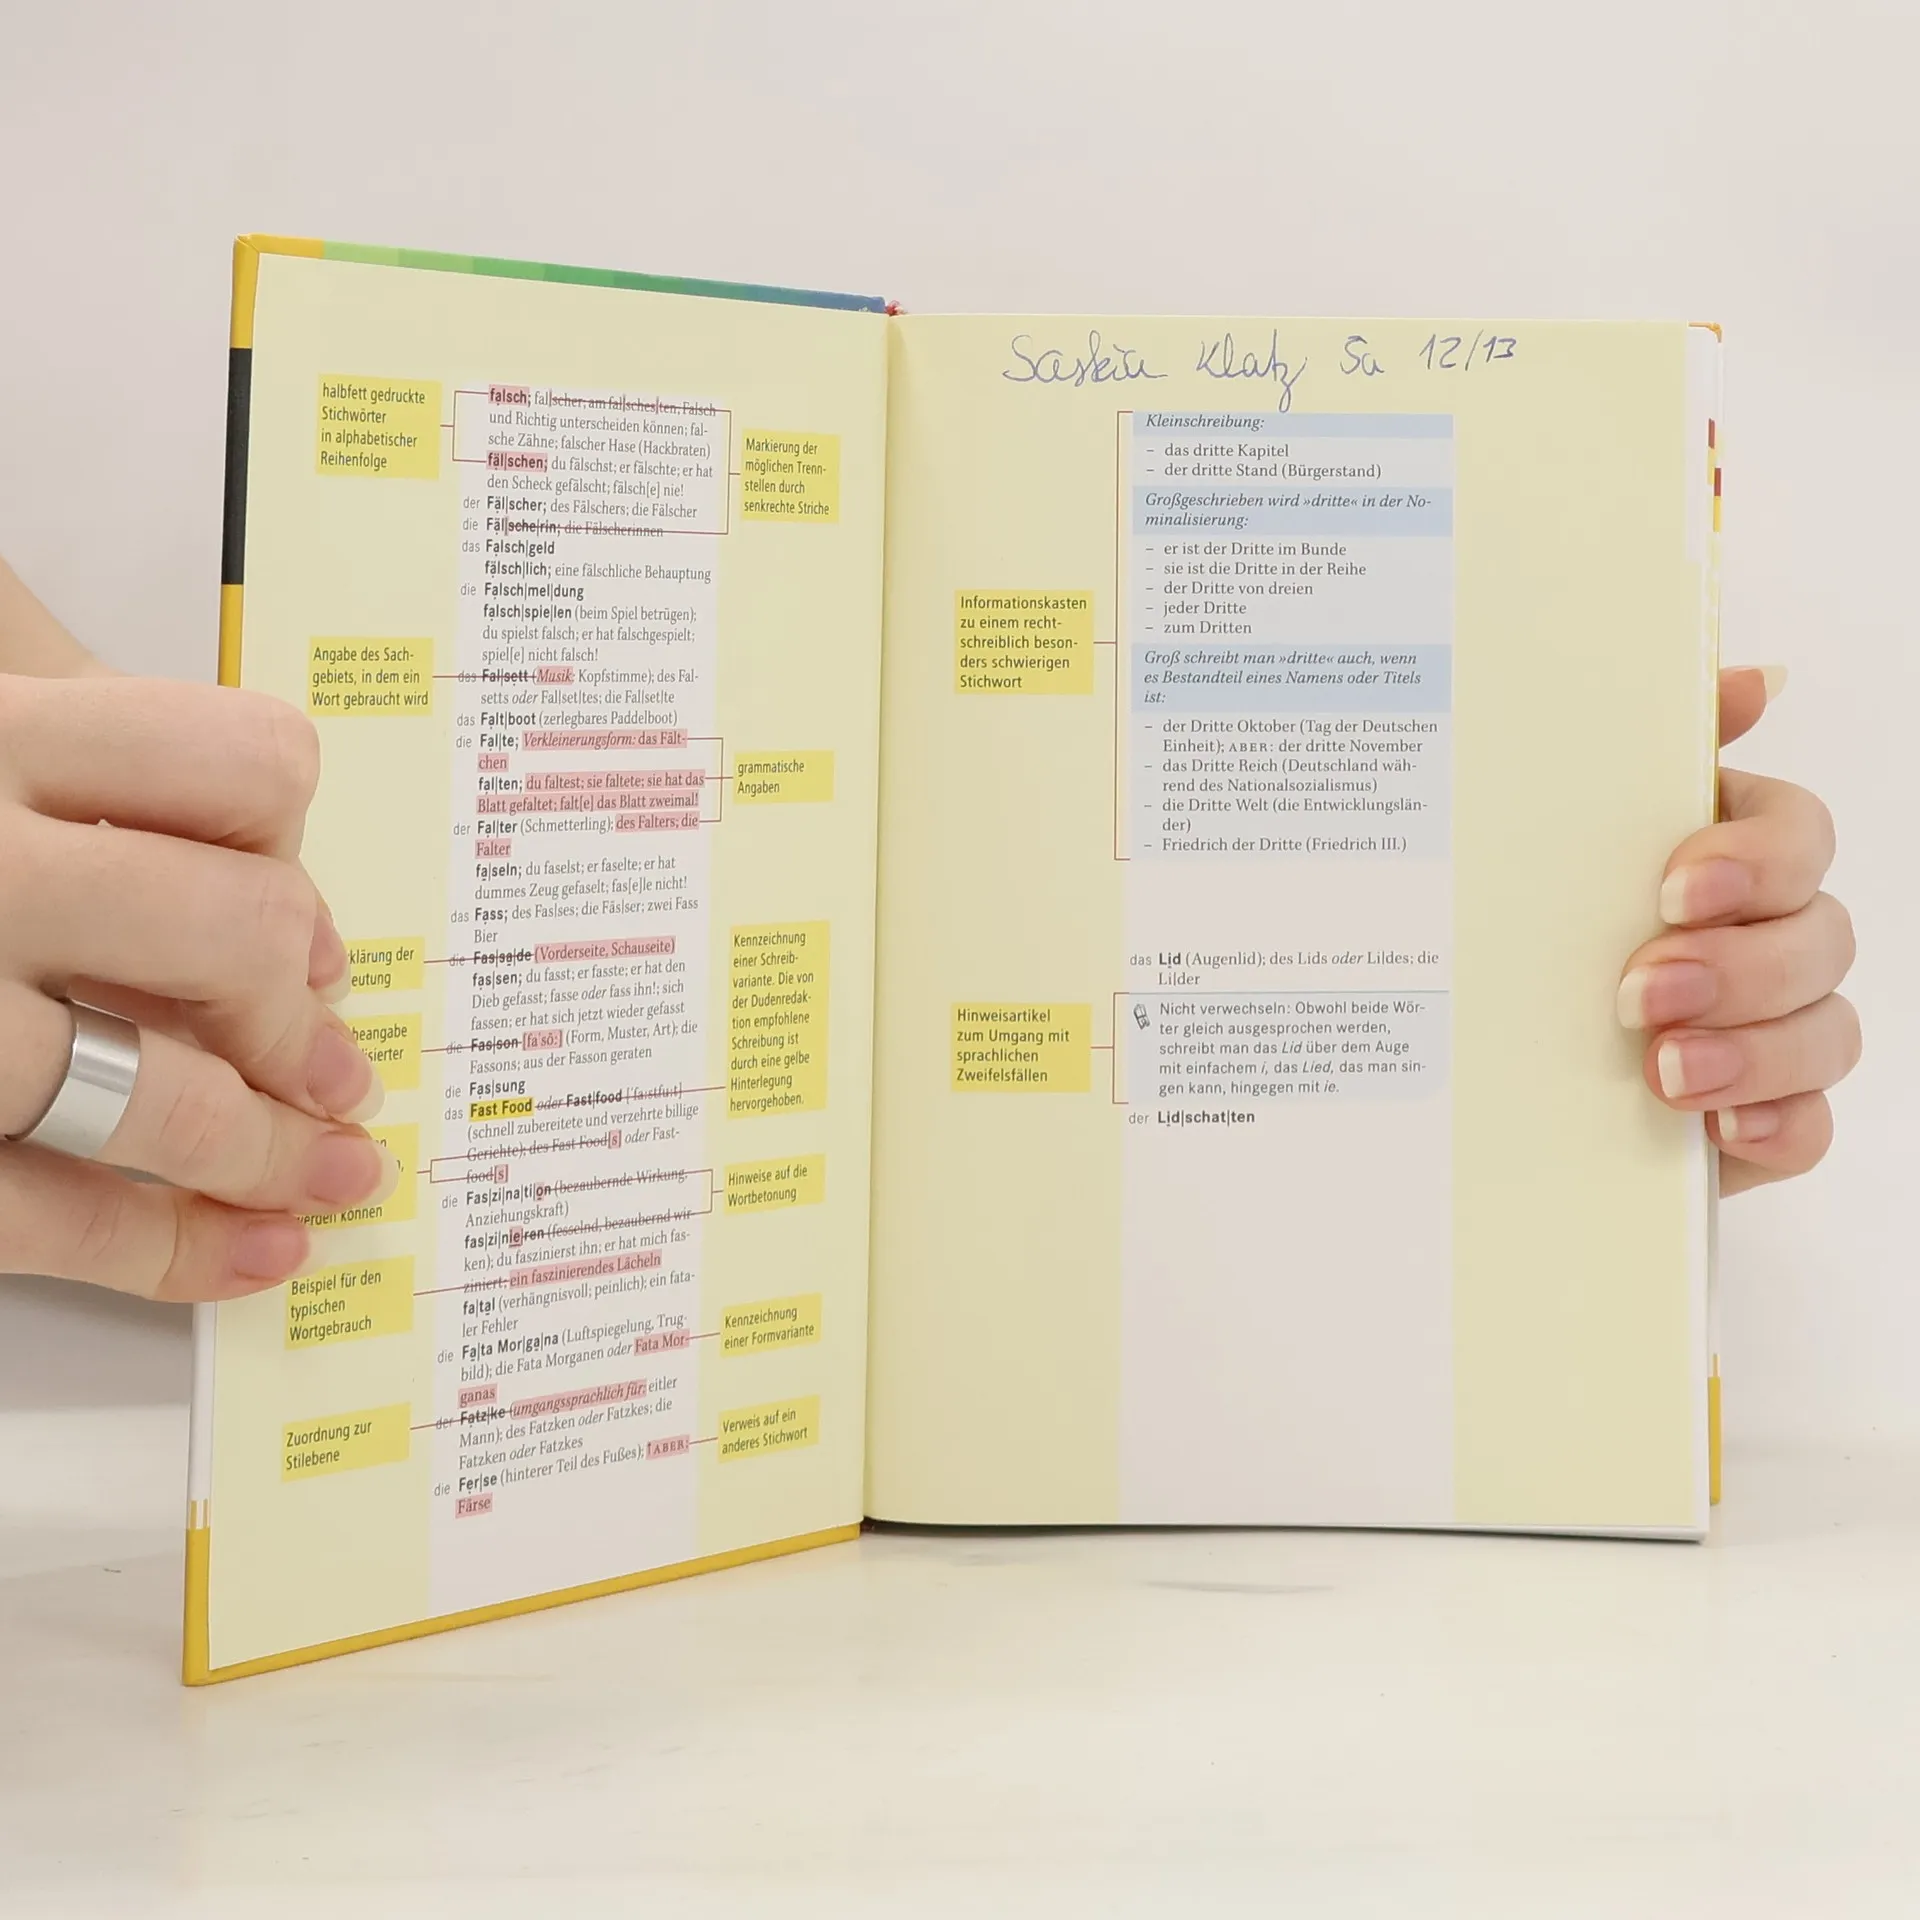 halbfett gedruckte
Stichwörter
in alphabetischer
Reihenfolge
Angabe des Sach-
gebiets, in dem ein
Wort gebraucht wird
klärung der
eutung
beangabe
isierter
werden können
Beispiel für den
typischen
Wortgebrauch
Zuordnung zur
Stilebene
falsch; fal|scher; am fal|sches|ten; Falsch
und Richtig unterscheiden können; fal-
sche Zähne; falscher Hase (Hackbraten)
fäl|schen; du fälschst; er fälschte; er hat
den Scheck gefälscht; fälsch[e] nie!
der Fäl|scher; des Fälschers; die Fälscher
die Fäl|sche|rin; die Fälscherinnen
das Falsch|geld
fälsch|lich; eine fälschliche Behauptung
die Falsch|mel|dung
falsch|spie|len (beim Spiel betrügen);
du spielst falsch; er hat falschgespielt;
spiel[e] nicht falsch!
das Fal|sett (Musik: Kopfstimme); des Fal-
setts oder Fal|set|tes; die Fal|set|te
das Falt|boot (zerlegbares Paddelboot)
die Fal|te; Verkleinerungsform: das Fält-
chen
fal|ten; du faltest; sie faltete; sie hat das
Blatt gefaltet; falt[e] das Blatt zweimal!
der Fal|ter (Schmetterling); des Falters; die
Falter
fa|seln; du faselst; er faselte; er hat
dummes Zeug gefaselt; fas[e]le nicht!
das Fass; des Fas|ses; die Fäs|ser; zwei Fass
Bier
die Fas|sa|de (Vorderseite, Schauseite)
fas|sen; du fasst; er fasste; er hat den
Dieb gefasst; fasse oder fass ihn!; sich
fassen; er hat sich jetzt wieder gefasst
die Fas|son [faˈsõː] (Form, Muster, Art); die
Fassons; aus der Fasson geraten
die Fas|sung
das Fast Food oder Fast|food [ˈfaːstfuːt]
(schnell zubereitete und verzehrte billige
Gerichte); des Fast Food[s] oder Fast-
food[s]
die Fas|zi|na|ti|on (bezaubernde Wirkung,
Anziehungskraft)
fas|zi|nie|ren (fesselnd, bezaubernd wir-
ken); du faszinierst ihn; er hat mich fas-
ziniert; ein faszinierendes Lächeln
fa|tal (verhängnisvoll; peinlich); ein fata-
ler Fehler
die Fa|ta Mor|ga|na (Luftspiegelung, Trug-
bild); die Fata Morganen oder Fata Mor-
ganas
der Fatz|ke (umgangssprachlich für: eitler
Mann); des Fatzken oder Fatzkes; die
Fatzken oder Fatzkes
die Fer|se (hinterer Teil des Fußes); ↑ABER:
Färse
Markierung der
möglichen Trenn-
stellen durch
senkrechte Striche
grammatische
Angaben
Kennzeichnung
einer Schreib-
variante. Die von
der Dudenredak-
tion empfohlene
Schreibung ist
durch eine gelbe
Hinterlegung
hervorgehoben.
Hinweise auf die
Wortbetonung
Kennzeichnung
einer Formvariante
Verweis auf ein
anderes Stichwort
Saskia Klatz 5a 12/13
Informationskasten
zu einem recht-
schreiblich beson-
ders schwierigen
Stichwort
Kleinschreibung:
– das dritte Kapitel
– der dritte Stand (Bürgerstand)
Großgeschrieben wird »dritte« in der No-
minalisierung:
– er ist der Dritte im Bunde
– sie ist die Dritte in der Reihe
– der Dritte von dreien
– jeder Dritte
– zum Dritten
Groß schreibt man »dritte« auch, wenn
es Bestandteil eines Namens oder Titels
ist:
– der Dritte Oktober (Tag der Deutschen
Einheit); ABER: der dritte November
– das Dritte Reich (Deutschland wäh-
rend des Nationalsozialismus)
– die Dritte Welt (die Entwicklungslän-
der)
– Friedrich der Dritte (Friedrich III.)
Hinweisartikel
zum Umgang mit
sprachlichen
Zweifelsfällen
das Lid (Augenlid); des Lids oder Li|des; die
Li|der
Nicht verwechseln: Obwohl beide Wör-
ter gleich ausgesprochen werden,
schreibt man das Lid über dem Auge
mit einfachem i, das Lied, das man sin-
gen kann, hingegen mit ie.
der Lid|schat|ten